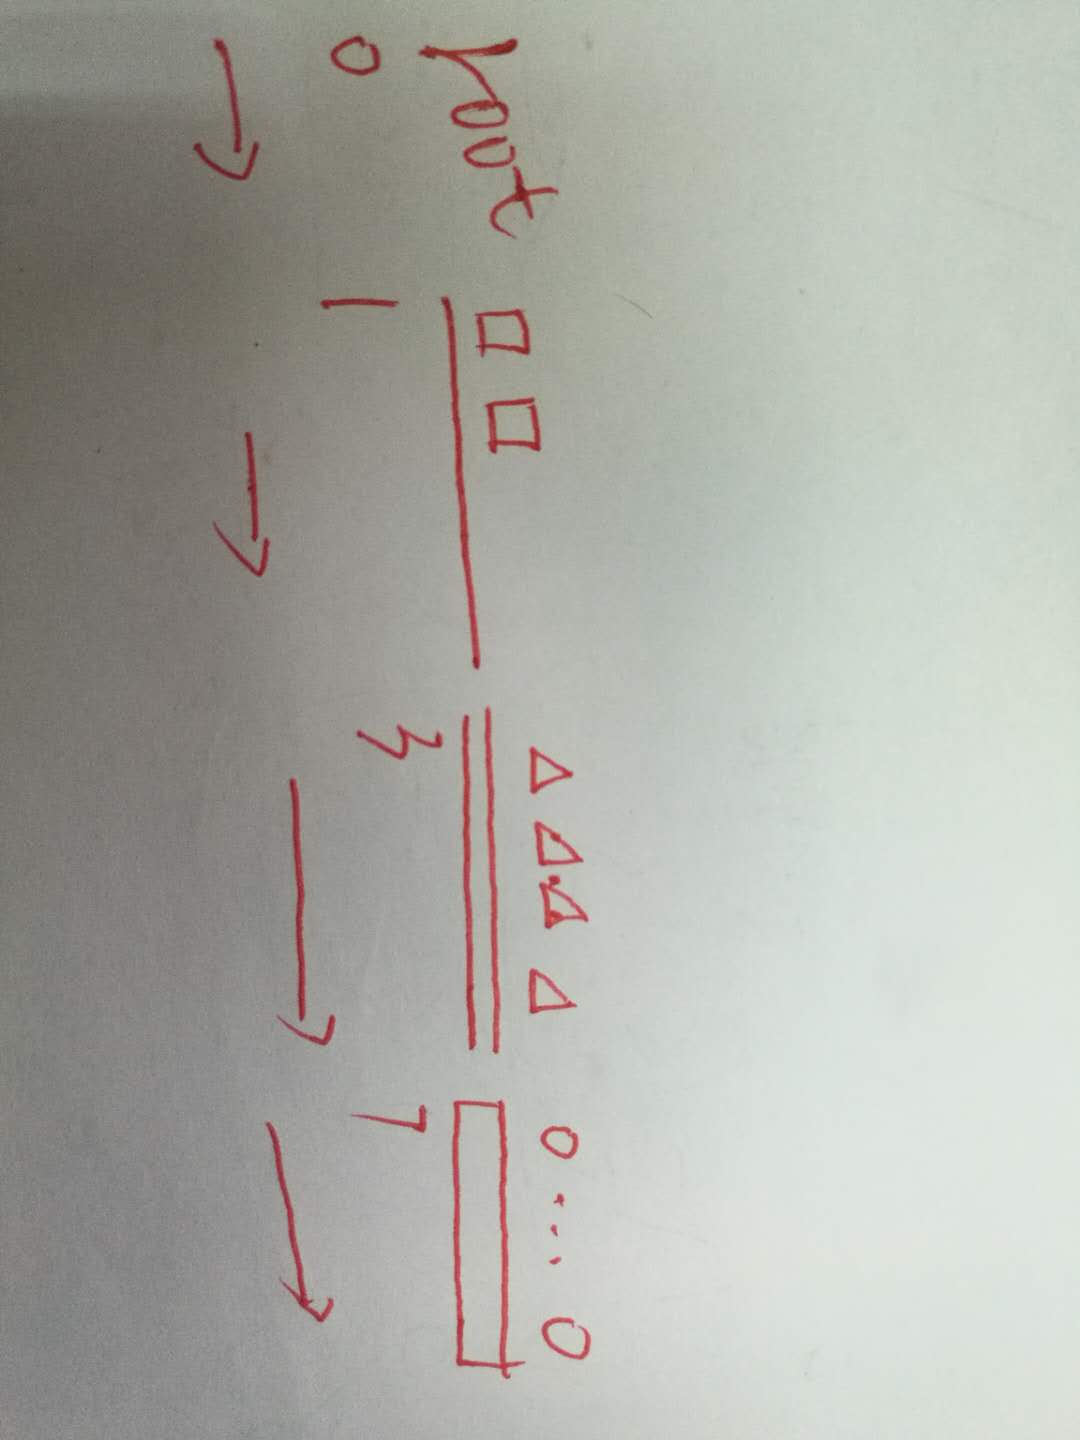 root
0 1 3 7